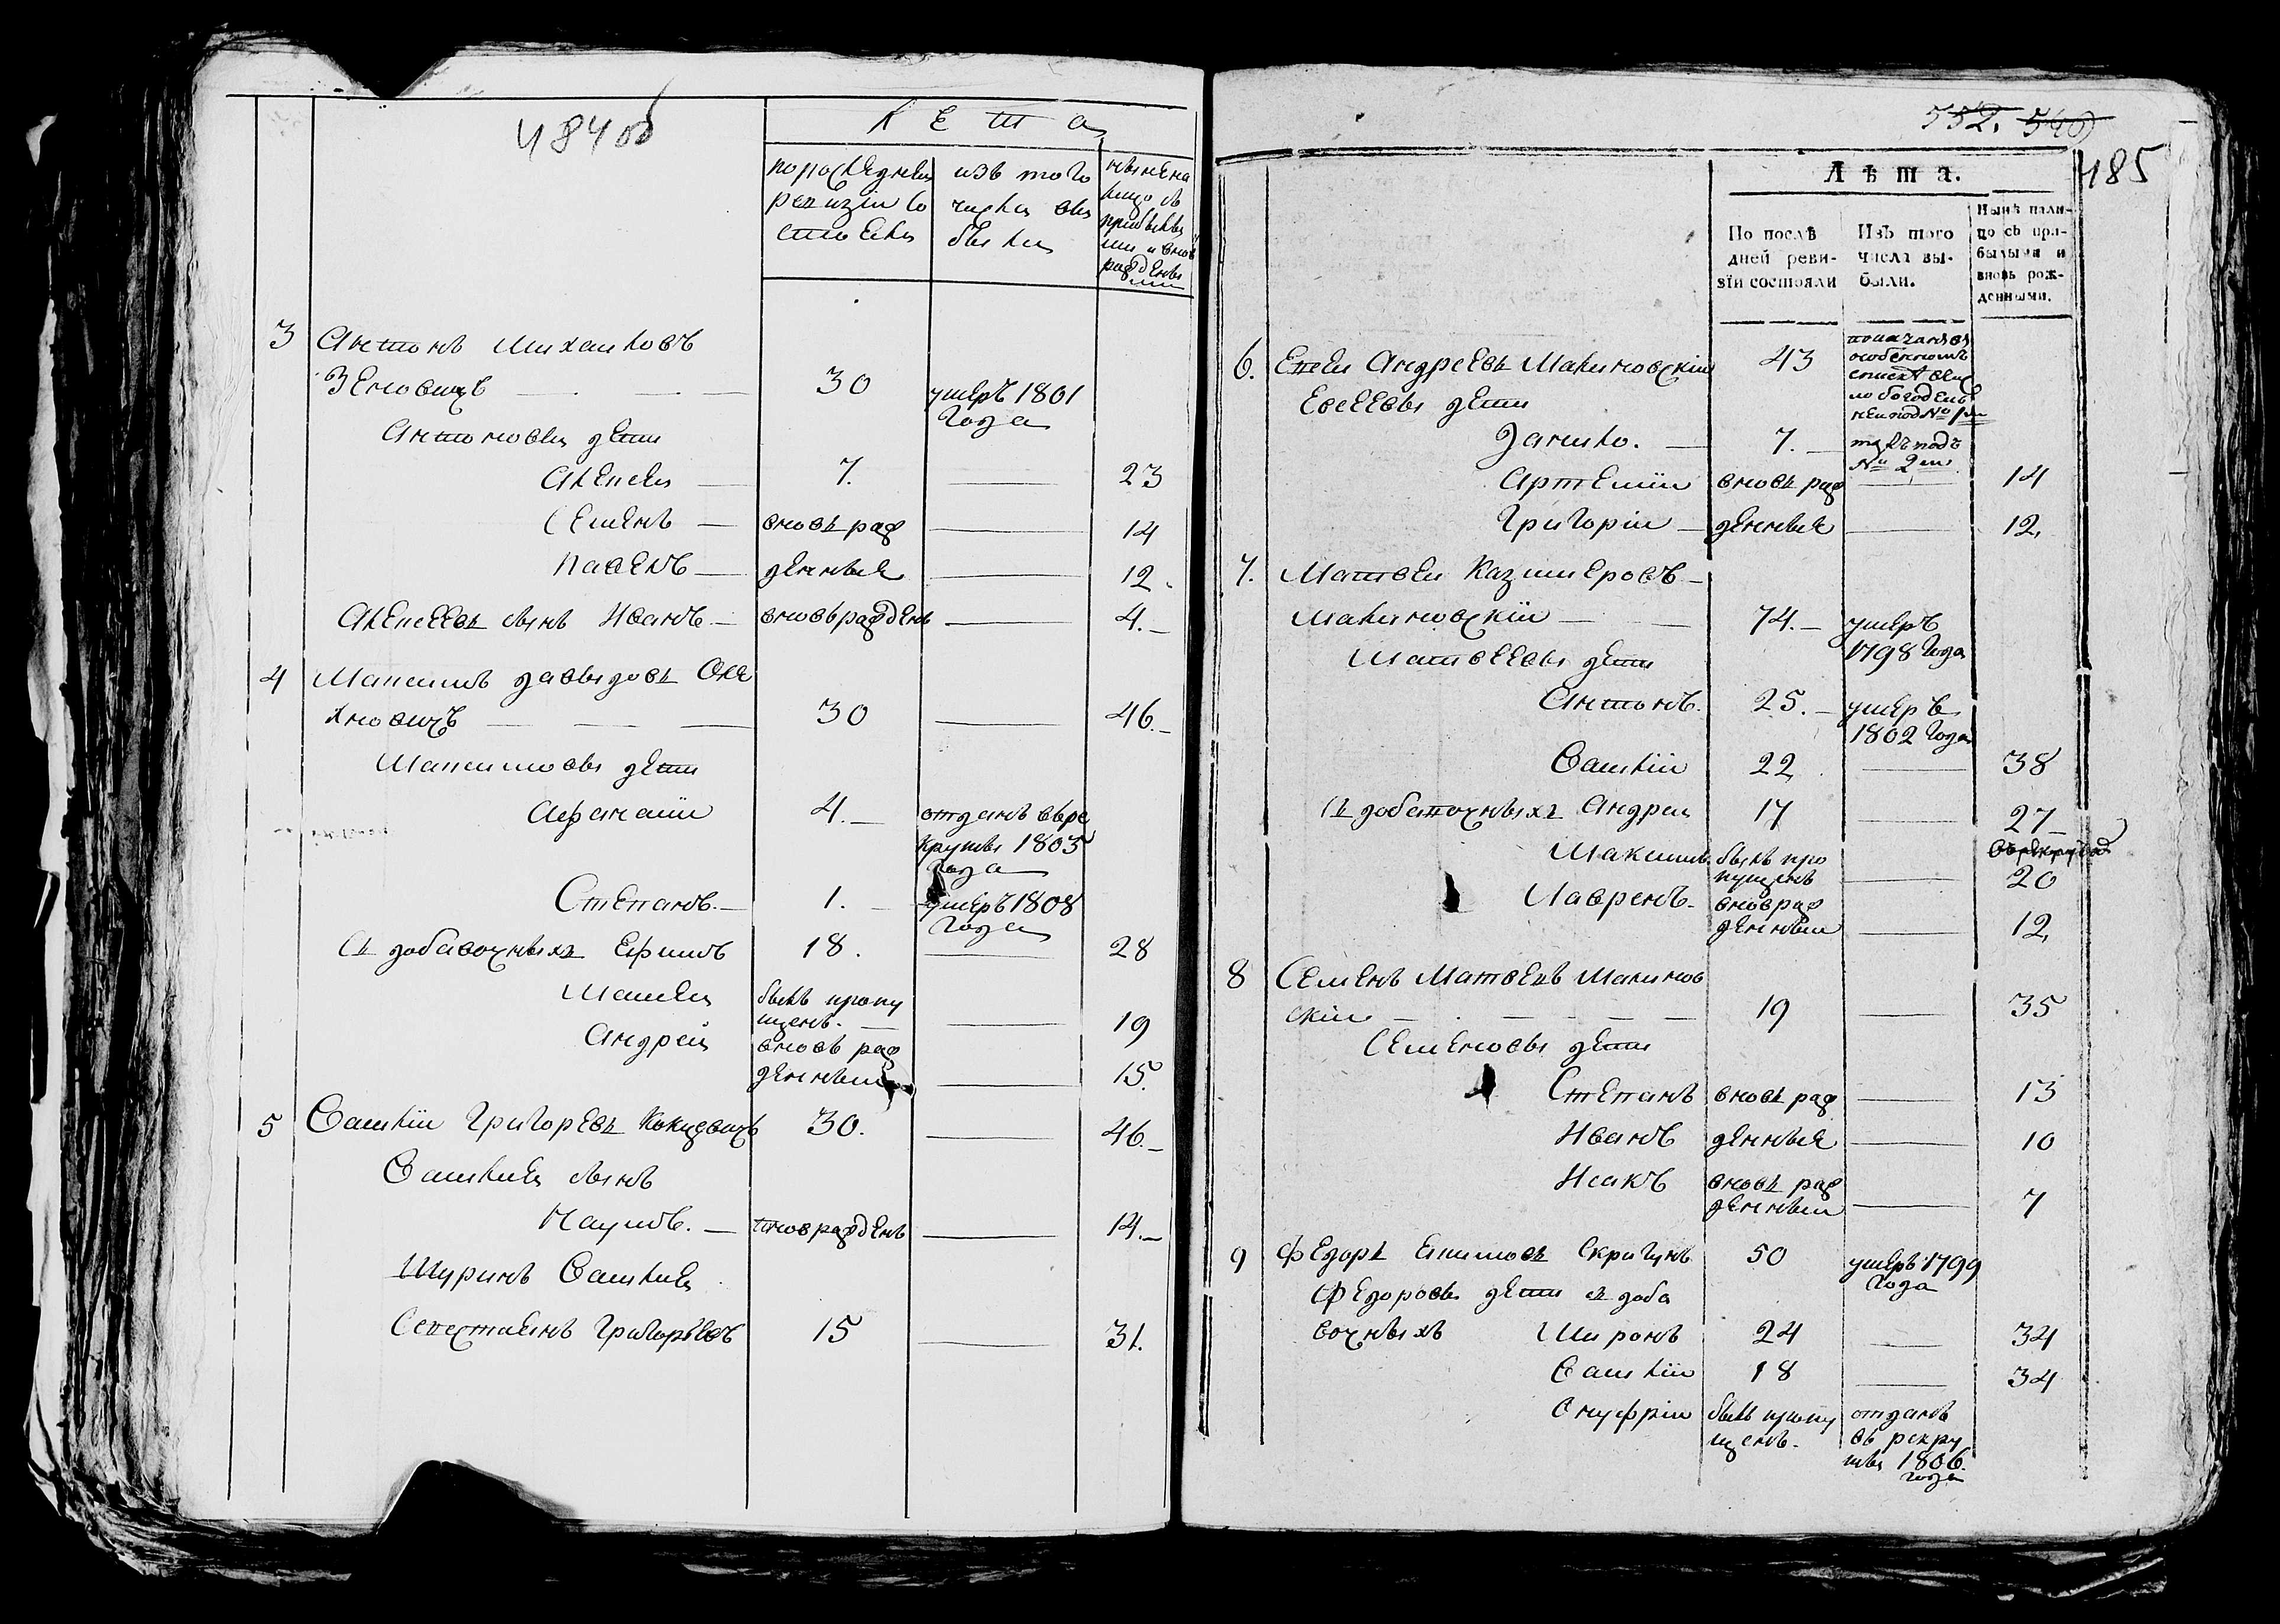 484 об
Лета
по последней ревизіи состояли
изъ того числа выбыли
ныне на лицо съ прибылыми и вновь рожденными
3 Антонъ Михаиловъ
Зеновичъ — 30 умеръ 1801 года
Антоновы дети
Алексеи — 7. — 23
Семенъ — вновь рож — 14
Павелъ — денные — 12.
Алексеевъ сынъ Иванъ — вновь рожденъ — 4.
4 Максимъ Давыдовъ
30 — 46.
Максимовы дети
Афанасіи 4. отданъ в рекруты 1805 года
Степанъ. 1. умеръ 1808 года
Съ добавочныхъ Ефимъ 18. — 28
Матвеи былъ пропущенъ. — 19
Андреи вновь рожденныи — 15.
5 Василіи Григорьевъ 30. — 46.
Василия сынъ
Наумъ. — вновь рожденъ — 14.
Шуринъ Василия
Севестиянъ Григорьевъ 15 — 31.
552. 540
485
Лѣта.
По послѣдней ревизїи состояли
Изъ того числа выбыли.
Нынѣ налицо съ прибылыми и вновь рожденными.
6. Евсеи Андреевъ Малиновскіи 43 показанъ въ особенномъ списке под № 1м
Евсеевы дети
Данило. — 7. — такъ подъ № 2м
Артеміи вновь рож — 14
Григоріи — денные — 12.
7. Матвеи Казимеровъ —
Малиновскіи — 74. — умеръ 1798 года
Матвеевы дети
Антонъ. 25. — умеръ 1802 года
Василіи 22 — 38
Съ добавочныхъ Андреи 17 — 27
Максимъ былъ пропущенъ — 20
Лавренъ. вновь рожденныи — 12.
8 Семенъ Матвеевъ Малинов
скіи — 19 — 35
Семеновы дети
Степанъ вновь рож — 13
Иванъ денные — 10
Исакъ вновь рожденныи — 7
9 Федоръ Скригунъ 50 умеръ 1799 года
Федоровы дети съ доба
вочныхъ Миронъ 24 — 34
Василіи 18 — 34
Онуфріи былъ пропущенъ. отданъ въ рекруты 1806. года